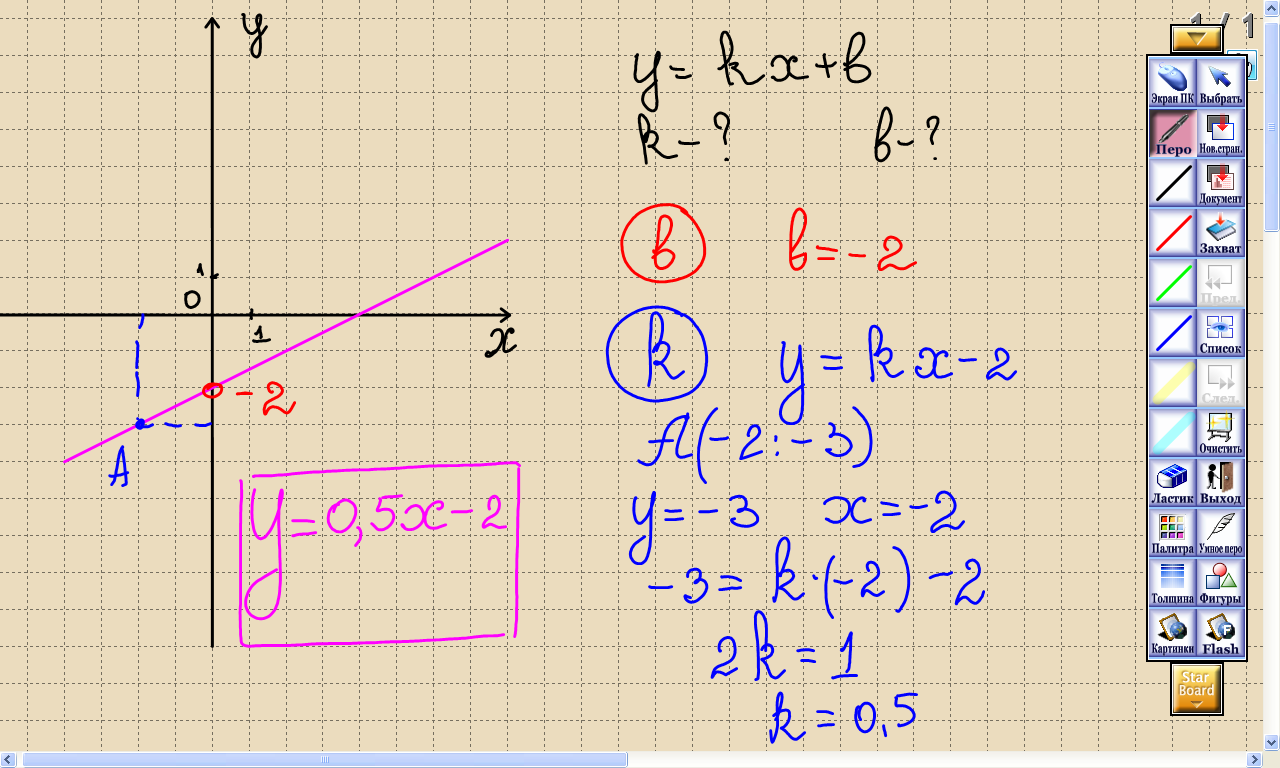 1 / 1
y
y = kx + b
k - ?
b - ?
1
0
1
x
-2
A
b
b = -2
k
y = kx - 2
A(-2; -3)
y = -3 x = -2
-3 = k·(-2) - 2
2k = 1
k = 0,5
y = 0,5x - 2
Экран ПК
Выбрать
Перо
Нов.стран.
Документ
Захват
Пред.
Список
След.
Очистить
Ластик
Выход
Палитра
Умное перо
Толщина
Фигуры
Картинки
Flash
Star
Board